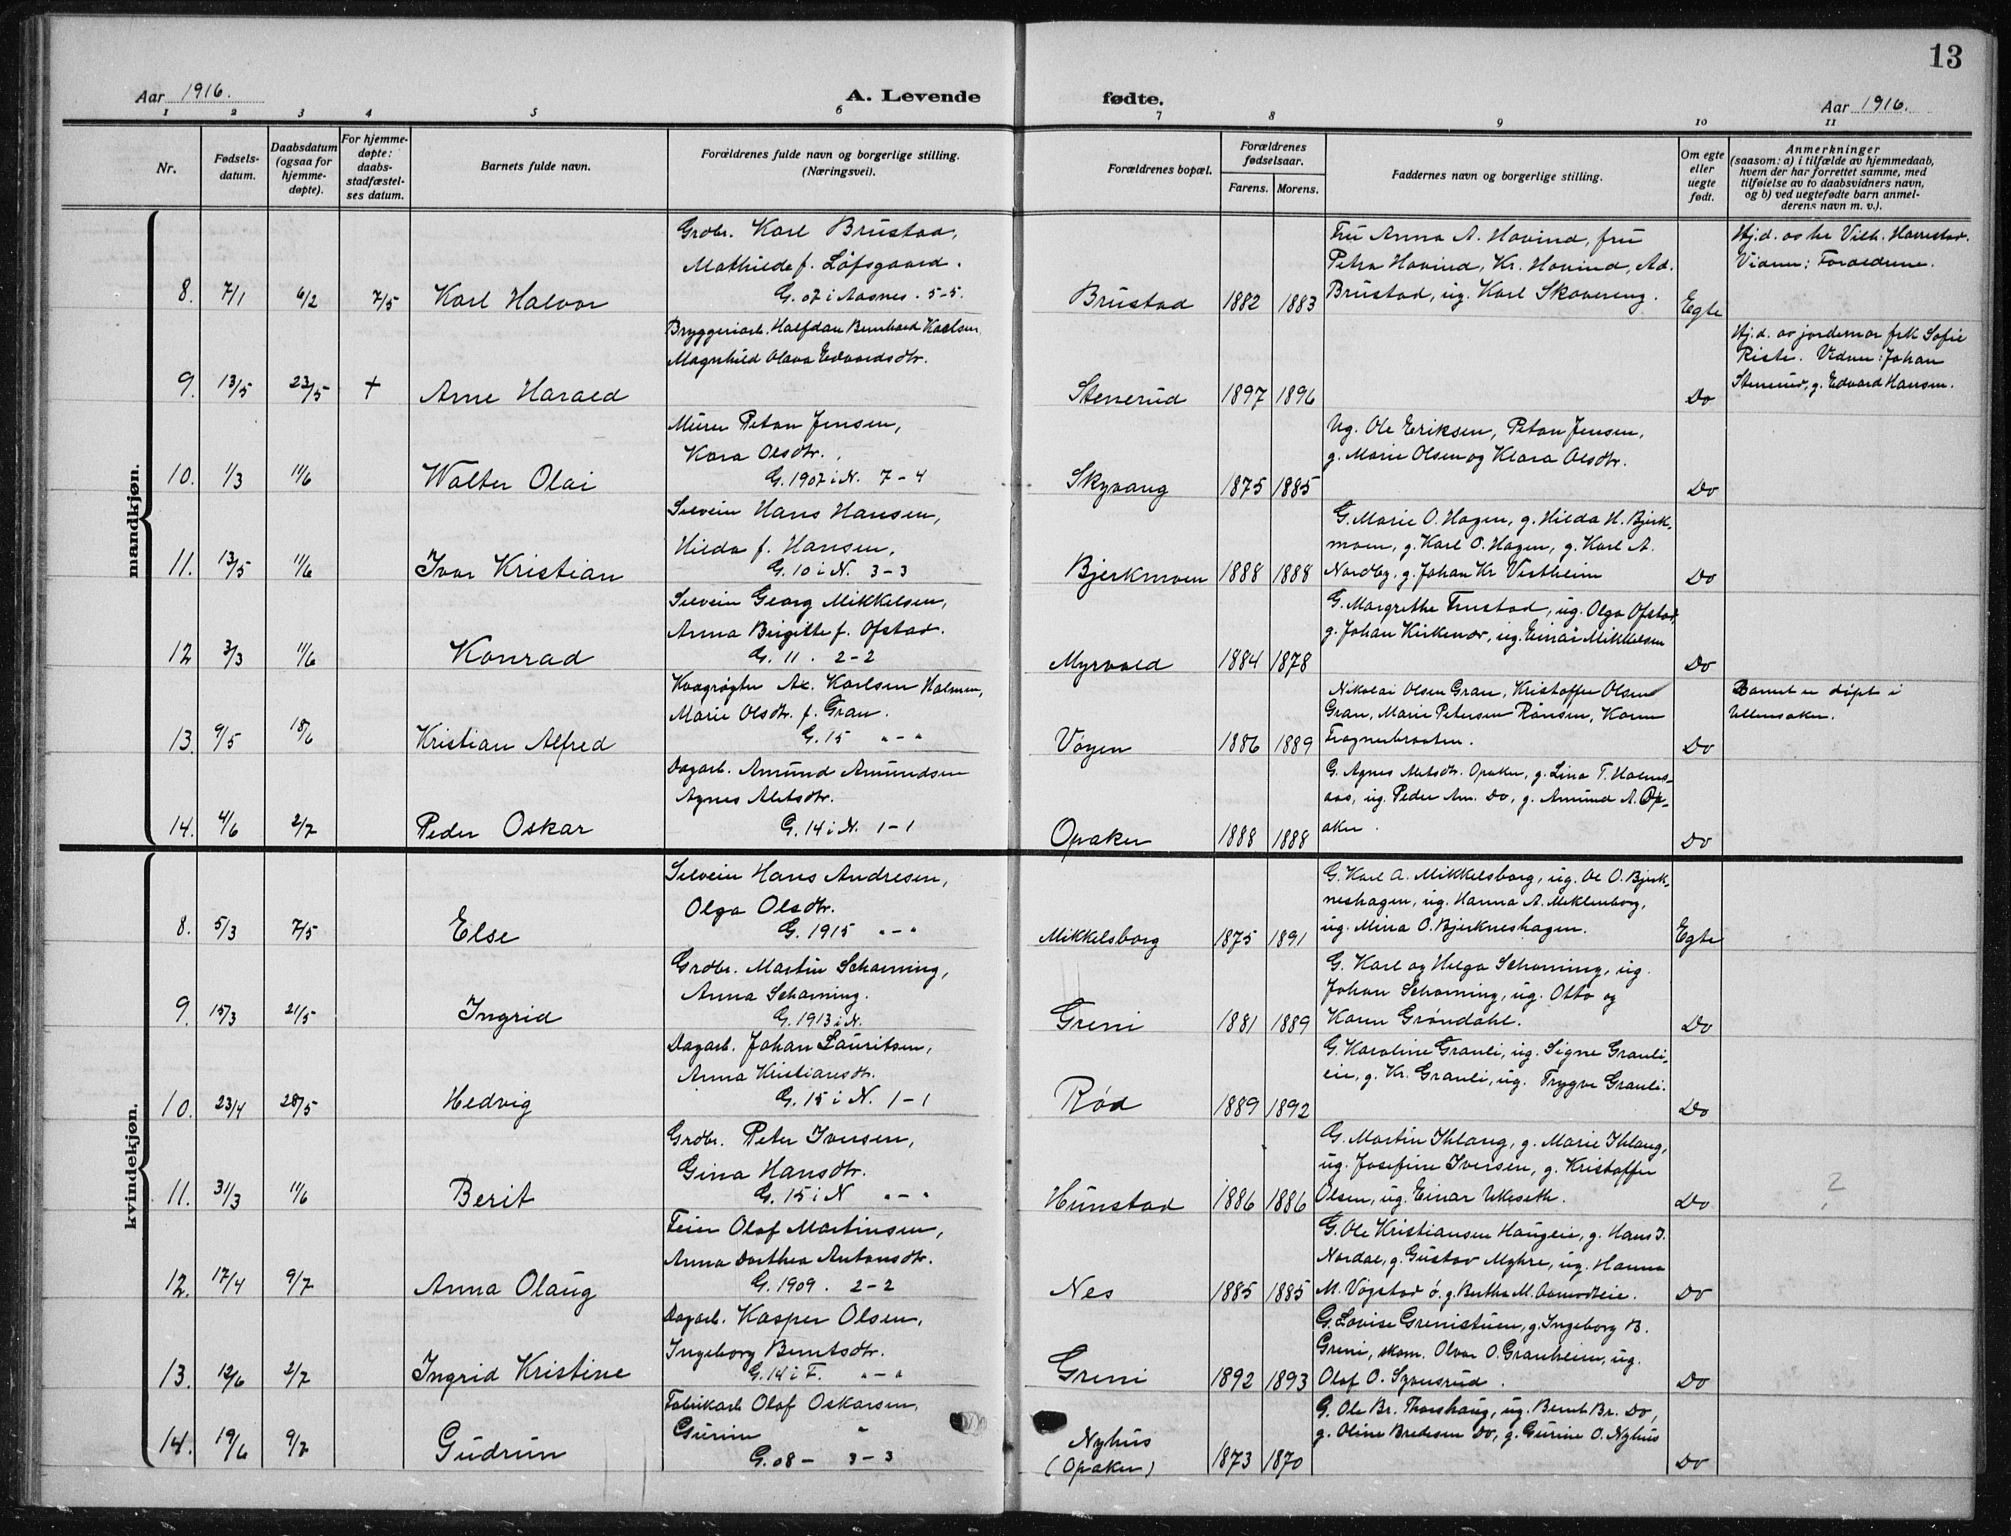 13
Aar 1916.
A. Levende
fødte.
Aar 1916.
1 2 3 4 5 6 7 8 9 10 11
Nr.
Fødsels-
datum.
Daabsdatum
(ogsaa for
hjemme-
døpte).
For hjemme-
døpte:
daabs-
stadfæstel-
ses datum.
Barnets fulde navn.
Forældrenes fulde navn og borgerlige stilling.
(Næringsvei).
Forældrenes bopæl.
Forældrenes
fødselsaar.
Farens. Morens.
Faddernes navn og borgerlige stilling.
Om egte
eller
uegte
født.
Anmerkninger
(saasom: a) i tilfælde av hjemmedaab,
hvem der har forrettet samme, med
tilføielse av to daabsvidners navn,
og b) ved uegtefødte barn anmel-
derens navn m. v.).
mandkjøn.
Grdbr. Karl Brustad,
Mathilde f. Løfsgaard.
G. 07 i Aasnes. 5-5.
8. 7/1 6/2 7/5 Karl Halvor
Brustad 1882 1883
Fru Anna A. Hovind, fru
Petra Hovind, Kr. Hovind, Ad.
Brustad, ug. Karl Skovereng.
Egte
Hj.d. av hr Vilh. Harrestad.
Vidner: Forældrene.
Bryggeriarb. Halfdan Bernhard Karlsen
Magnhild Olava Edvardsdtr.
9. 13/5 23/5 + Arne Harald
Stenerud 1897 1896
Do
Hj.d. av jordemor frk Sofie
Riste. Vidner: Johan
Stenerud, g. Edvard Hansen.
Murer Petan Jensen,
Kara Olsdtr.
G. 1907 i N. 7-4
10. 1/3 11/6 Walter Olai
Skyvang 1875 1885
Ug. Ole Eriksen, Petan Jensen,
g. Marie Olsen og Klara Olsdtr.
Do
Selveier Hans Hansen,
Hilda f. Hansen,
G. 10 i N. 3-3
11. 13/5 11/6 Ivar Kristian
Bjerkmoen 1888 1888
G. Marie O. Hagen, g. Hilda H. Bjerk-
moen, g. Karl O. Hagen, g. Karl A.
Nordby, g. Johan Kr Vestheim
Do
Selveier Georg Mikkelsen,
Anna Birgitte f. Ofstad.
G. 11. 2-2
12 3/3 11/6 Konrad
Myrvold 1884 1878
G. Margrethe Frustad, ug. Olga Ofstad,
g. Johan Kirkenær, ug. Einar Mikkelsen
Do
Kvægrøgter Ax. Karlsen Holmen,
Marie Olsdtr. f. Gran.
G. 15 " - "
13. 9/5 18/6 Kristian Alfred
Vagen 1886 1889
Nikolai Olsen Gran, Kristoffer Olsen
Gran, Marie Petersen Rånsen, Karen
Trognerbraaten.
Do
Barnet er døpt i
Ullensaker.
Dagarb. Amund Amundsen
Agnes Aletsdtr.
G. 14 i N. 1-1
14. 4/6 2/7 Peder Oskar
Opaker 1888 1888
G. Agnes Aletsdtr. Opaker, g. Lina T. Holms-
aas, ug. Peder Am. Do, g. Amund A. Op-
aker.
Do
kvindekjøn.
Selveier Hans Andresen,
Olga Olsdtr.
G. 1915 " - "
8. 5/3 7/5 Else
Mikkelsborg 1875 1891
G. Karl A. Mikkelsborg, ug. Ol O. Bjerk-
neshagen, ug. Hanna A. Meklenborg,
ug. Mina O. Bjerkneshagen.
Egte
Grdbr. Martin Scharning,
Anna Scharning.
G. 1913 i N.
9. 15/3 21/5 Ingrid
Greni 1881 1889
G. Karl og Helga Scharning, ug.
Johan Scharning, ug. Otto og
Karen Grøndahl.
Do
Dagarb. Johan Lauritsen,
Anna Kristiansdtr.
G. 15 i N. 1-1
10. 23/4 28/5 Hedvig
Rød 1889 1892
G. Karoline Grauli, ug. Signe Grauli-
eie, g. Kr. Grauli, ug. Trygve Grauli.
Do
Grdbr. Peter Iversen,
Gina Hansdtr.
G. 15 i N " - "
11. 31/3 11/6 Berit
Hunstad 1886 1886
G. Martin Ihlang, g. Marie Ihlang,
ug. Josefine Iversen, g. Kristoffer
Olsen, ug. Einar Ukeseth.
Do
2
Feier Olaf Martinsen,
Anna Dorthea Antonsdtr.
G. 1909. 2-2
12. 17/4 9/7 Anna Olaug
Nes 1885 1885
G. Ole Kristiansen Haugeie, g. Hans I.
Nordal, g. Gustav Myhre, ug. Hanna
M. Vøgstad ø. g. Bertha M. Aamodteie.
Do
Dagarb. Kasper Olsen,
Ingeborg Berntsdtr.
G. 14 i F. " - "
13. 12/6 2/7 Ingrid Kristine
Greni 1892 1893
G. Lovise Grenistuen, g. Ingeborg B.
Greni, skom. Olvar O. Granheim, ug.
Olaf O.
Do
Fabrikarb Olaf Oskarsen,
Gurine "
G. 08 - 3-3
14. 19/6 9/7 Gudrun
Nyhus
(Opaker)
1873 1870
G. Ole Br. Thorshaug, ug. Bernt Br. Do,
g. Oline Bredesen Do, g. Gurine O. Nyhus
Do